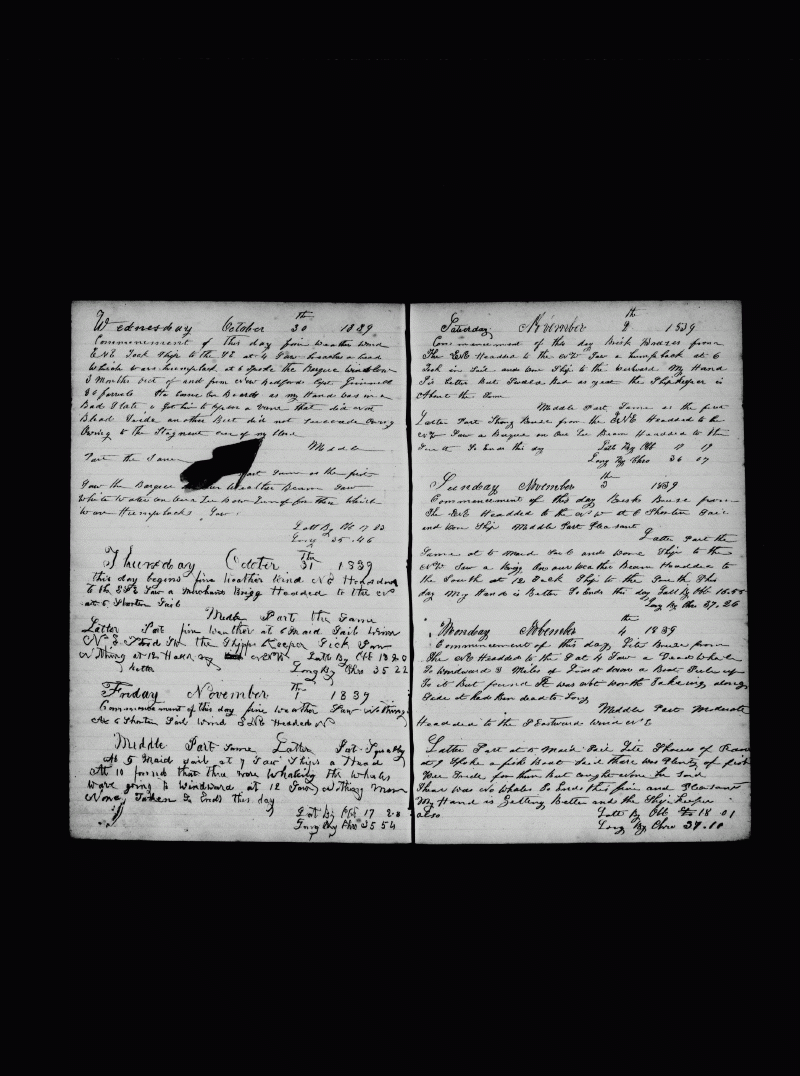 Wednesday October 30th 1839
Commencement of this day fine weather wind
ENE Tack Ship to the SE at 4 Saw a head
Which were humpback at 6 Spoke the Barque Winslow
3 Months out of and from New Bedford Capt Grinnell
He came on Board as my Hand was in a
Bad State & Got him to open a vine that did not
Bleed Tride another But did not succeade Owing
Owing to the Stagment of my blood
Middle
Part the Same
Part Same as the first
Saw the Barque Weather Beam Saw
White Water on our Lee Bow for them Which
Ware Humpbacks
Latt By Ob 17 23
Long 35-46
Thursday October 31th 1839
this day begins fine weather wind NE Headded
to the SSE Saw a Merchant Brigg Headded to the NW
at 6 Shorten Sail
Middle Part the Same
Latter Part fine weather at 6 Maid Sail wind
NE the Shipps Keeper Sick Saw
Nothing my Latt By Ob 18 20
better Long By Chro 35 22
Friday November 1th 1839
Commencement of this day fine weather Saw Nothing
At 6 Shorten Sail Wind ENE Headded N
Middle Part Same Latter Part Squally
At 5 Maid sail at 7 Saw Ships a Head
At 10 found that thee were Whaleing the Whales
ware going to Windward at 12 Saw Nothing more
None Taken So Ends this day
Latt By Ob 17 28
Long By Chro 35 54
Saturday November 2th 1839
Commencement of this day Brisk Breezes from
The ENE Headded to the NW Saw a humpback at 6
Took in Sail and wore Ship to the Eastward My Hand
Is Better But Sodden Bad as yeat the Shipkeeper is
About the Same
Middle Part Same as the first
Latter Part Strong Breeze from the ENE Headded to the
NW Saw a Barque on Our Lee Beam Headded to the
South So Ends this day Latt By Ob 17 17
Long By Chro 36 07
Sunday November 3th 1839
Commencement of this day Brisk Breeze from
The ENE Headded to the NW at 6 Shorten Sail
and wore Ship Middle Part Pleasant
Latter Part the
Same at 6 Maid Sail and wore Ship to the
NW Saw a Brigg on our Weather Beam Headded to
the South at 12 Tack Ship to the South This
day My Hand is Better So Ends this day Latt By Ob 16-55
Long By Chro 37-26
Monday November 4th 1839
Commencement of this day Lite Breeze from
The NE Headded to the S at 4 Saw a Dead Whale
To Windward 3 Miles of Lowerd a Boat Puled up
To it But found It was not worth Takeing along
Side it had Ben dead to Long
Middle Part Moderate
Headded to the SEastward Wind NE
Latter Part at 5 Maid Sail Lite Showers of Rain
at 9 Spoke a fish Boat Said thare was Plenty of fish
Wee Tride for them but caught None he Said
Thare was No Whales So Ends this fine and Pleasant
My Hand is Getting Better and the Ship Keeper
also Latt By Ob 18 01
Long By Chro 37-10